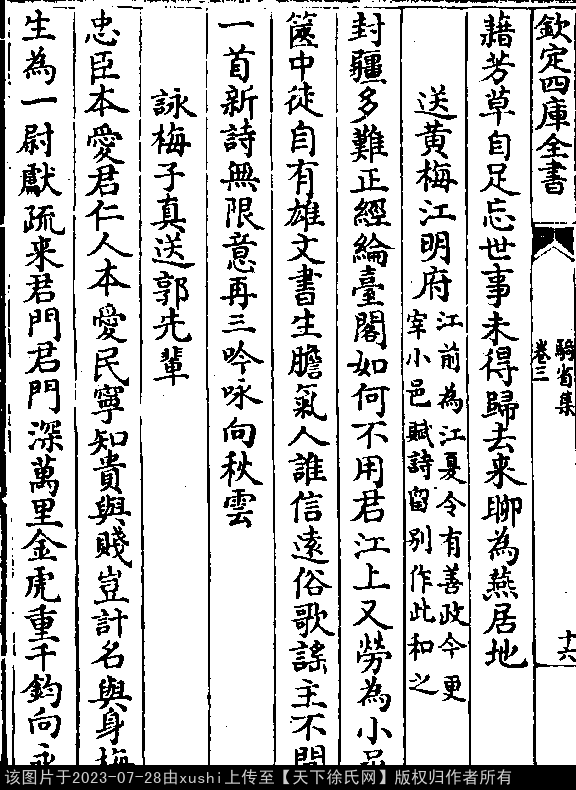 欽定四庫全書
騎省集
卷三
十六
藉芳草自足忘世事未得歸去来聊為燕居地
送黄梅江明府
江前為江夏令有善政今更
宰小邑賦詩留别作此和之
封疆多難正經綸臺閣如何不用君江上又勞為小邑
篋中徒自有雄文書生膽氣人誰信遠俗歌謠主不聞
一首新詩無限意再三吟咏向秋雲
詠梅子真送郭先輩
忠臣本愛君仁人本愛民寧知貴與賤豈計名與身梅
生為一尉獻疏来君門君門深萬里金虎重千鈞向永
该图片于2023-07-28由xushi上传至【天下徐氏网】版权归作者所有